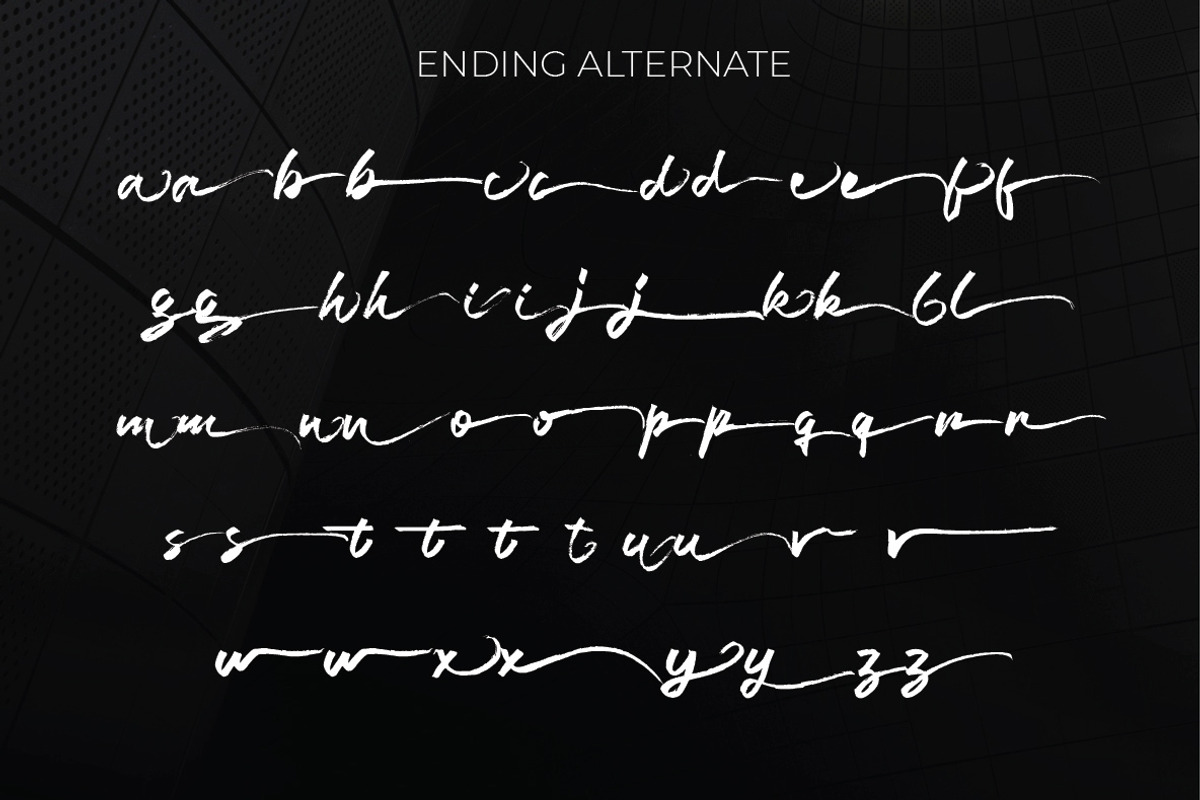 ENDING ALTERNATE
a a b b c c d d e e f f
g g h h i i j j k k l l
m m n n o o p p q q r r
s s t t t t u u v v
w w x x y y z z